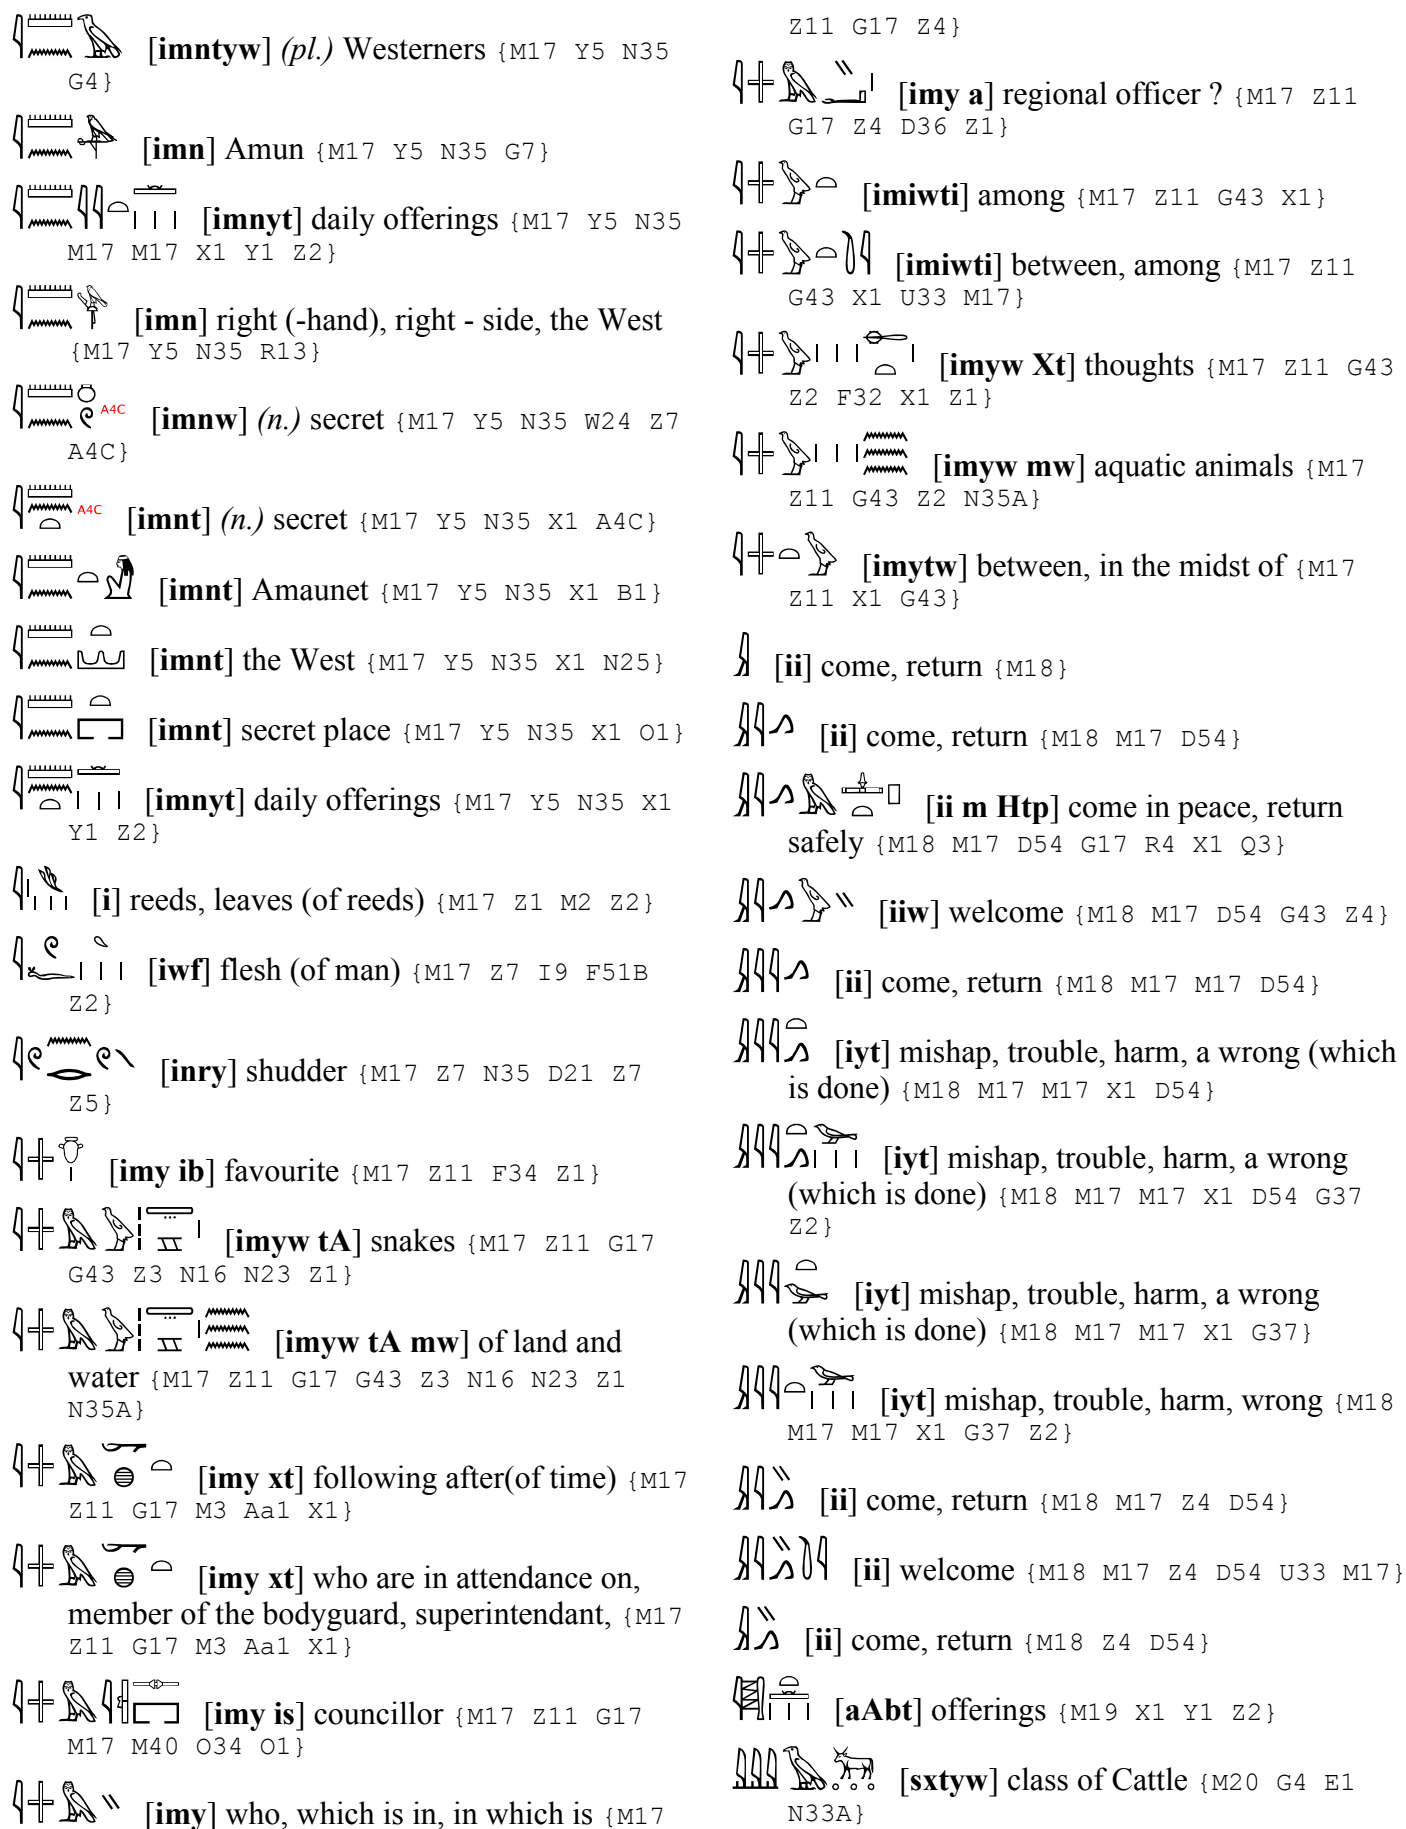 [imntyw] (pl.) Westerners {M17 Y5 N35
G4}
[imn] Amun {M17 Y5 N35 G7}
[imnyt] daily offerings {M17 Y5 N35
M17 M17 X1 Y1 Z2}
[imn] right (-hand), right - side, the West
{M17 Y5 N35 R13}
A4C [imnw] (n.) secret {M17 Y5 N35 W24 Z7
A4C}
A4C [imnt] (n.) secret {M17 Y5 N35 X1 A4C}
[imnt] Amaunet {M17 Y5 N35 X1 B1}
[imnt] the West {M17 Y5 N35 X1 N25}
[imnt] secret place {M17 Y5 N35 X1 O1}
[imnyt] daily offerings {M17 Y5 N35 X1
Y1 Z2}
[i] reeds, leaves (of reeds) {M17 Z1 M2 Z2}
[iwf] flesh (of man) {M17 Z7 I9 F51B
Z2}
[inry] shudder {M17 Z7 N35 D21 Z7
Z5}
[imy ib] favourite {M17 Z11 F34 Z1}
[imyw tA] snakes {M17 Z11 G17
G43 Z3 N16 N23 Z1}
[imyw tA mw] of land and
water {M17 Z11 G17 G43 Z3 N16 N23 Z1
N35A}
[imy xt] following after(of time) {M17
Z11 G17 M3 Aa1 X1}
[imy xt] who are in attendance on,
member of the bodyguard, superintendant, {M17
Z11 G17 M3 Aa1 X1}
[imy is] councillor {M17 Z11 G17
M17 M40 O34 O1}
[imy] who, which is in, in which is {M17
Z11 G17 Z4}
[imy a] regional officer ? {M17 Z11
G17 Z4 D36 Z1}
[imiwti] among {M17 Z11 G43 X1}
[imiwti] between, among {M17 Z11
G43 X1 U33 M17}
[imyw Xt] thoughts {M17 Z11 G43
Z2 F32 X1 Z1}
[imyw mw] aquatic animals {M17
Z11 G43 Z2 N35A}
[imytw] between, in the midst of {M17
Z11 X1 G43}
[ii] come, return {M18}
[ii] come, return {M18 M17 D54}
[ii m Htp] come in peace, return
safely {M18 M17 D54 G17 R4 X1 Q3}
[iiw] welcome {M18 M17 D54 G43 Z4}
[ii] come, return {M18 M17 M17 D54}
[iyt] mishap, trouble, harm, a wrong (which
is done) {M18 M17 M17 X1 D54}
[iyt] mishap, trouble, harm, a wrong
(which is done) {M18 M17 M17 X1 D54 G37
Z2}
[iyt] mishap, trouble, harm, a wrong
(which is done) {M18 M17 M17 X1 G37}
[iyt] mishap, trouble, harm, wrong {M18
M17 M17 X1 G37 Z2}
[ii] come, return {M18 M17 Z4 D54}
[ii] welcome {M18 M17 Z4 D54 U33 M17}
[ii] come, return {M18 Z4 D54}
[aAbt] offerings {M19 X1 Y1 Z2}
[sxtyw] class of Cattle {M20 G4 E1
N33A}